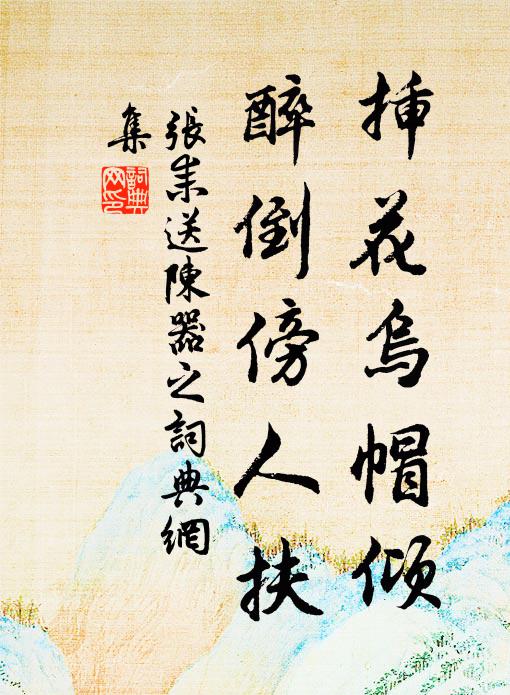 挿花烏帽傾
醉倒傍人扶
張耒送陳器之詞典網
集
詞典網印